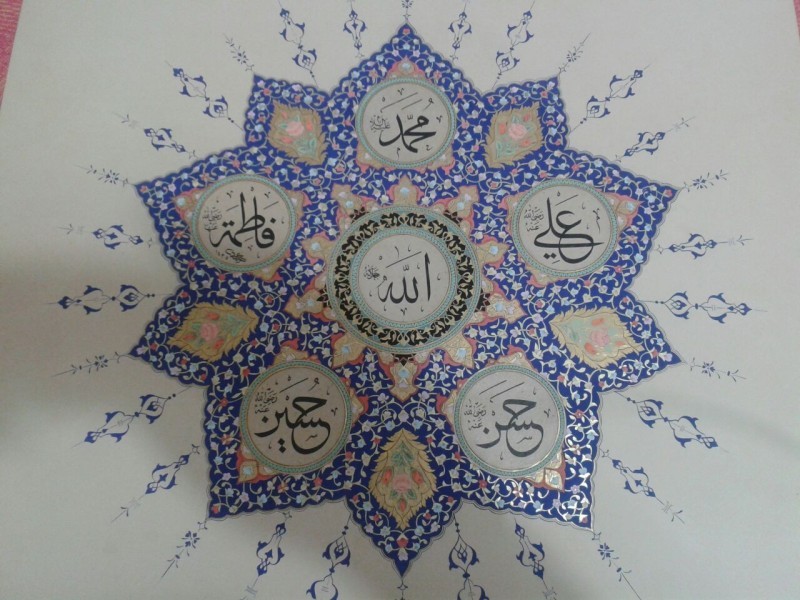 محمد ﷺ
علي رضي الله عنه
فاطمة
الله ﷻ
حسن رضي الله عنه
حسين رضي الله عنه